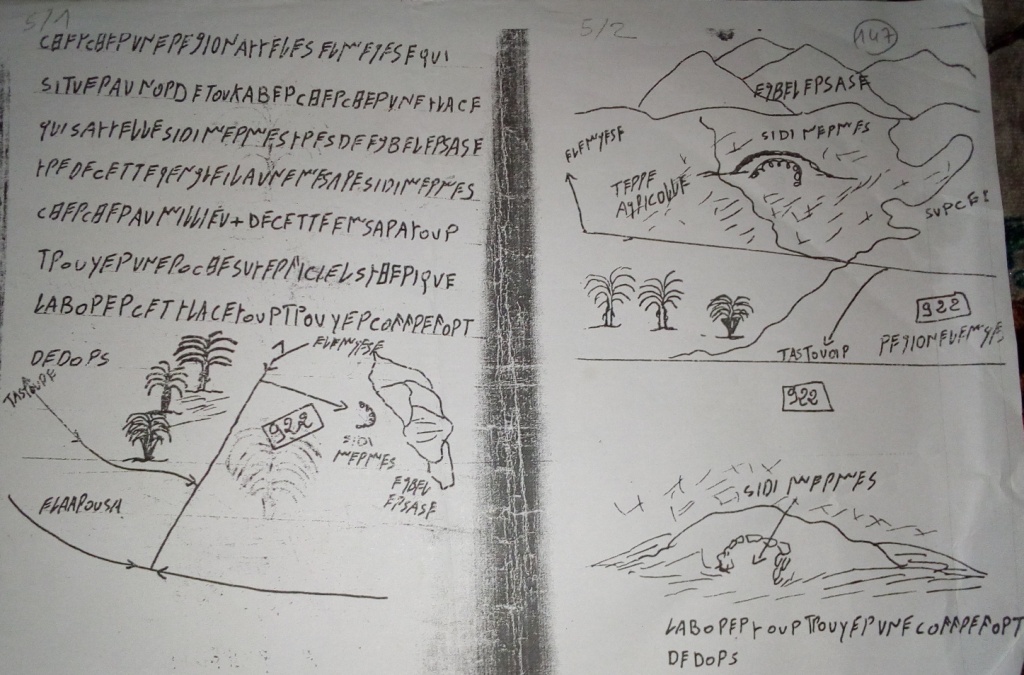 5/1
CHERCHER UNE REGION APPELES ELMEGESE QUI
SITUER AU NORD DE TOUKABER CHERCHER UNE PLACE
QUI SAPPELLE SIDI MERMES PRES DE EGBEL ERSASE
PRE DE CETTE IL A UNE SIDI MERMES
CHERCHER AU MILLIEU + DE CETTE EMSARA POUR
TROUVER UNE ROCHE SUPERFICIEL SPHERIQUE
LABORER CET PLACE POUR TROUVER COFFRE FORT
DE DORS
ELMEGESE
TASTOURE
922
SIDI MERMES
EGBEL ERSASE
ELAROUSA
5/2
147
EGBEL ERSASE
ELMEGESE
SIDI MERMES
TERRE AGRICOLLE
922
TASTOUR
REGION ELEMGES
922
SIDI MERMES
LABORER POUR TROUVER UNE COFFRE FORT
DE DORS